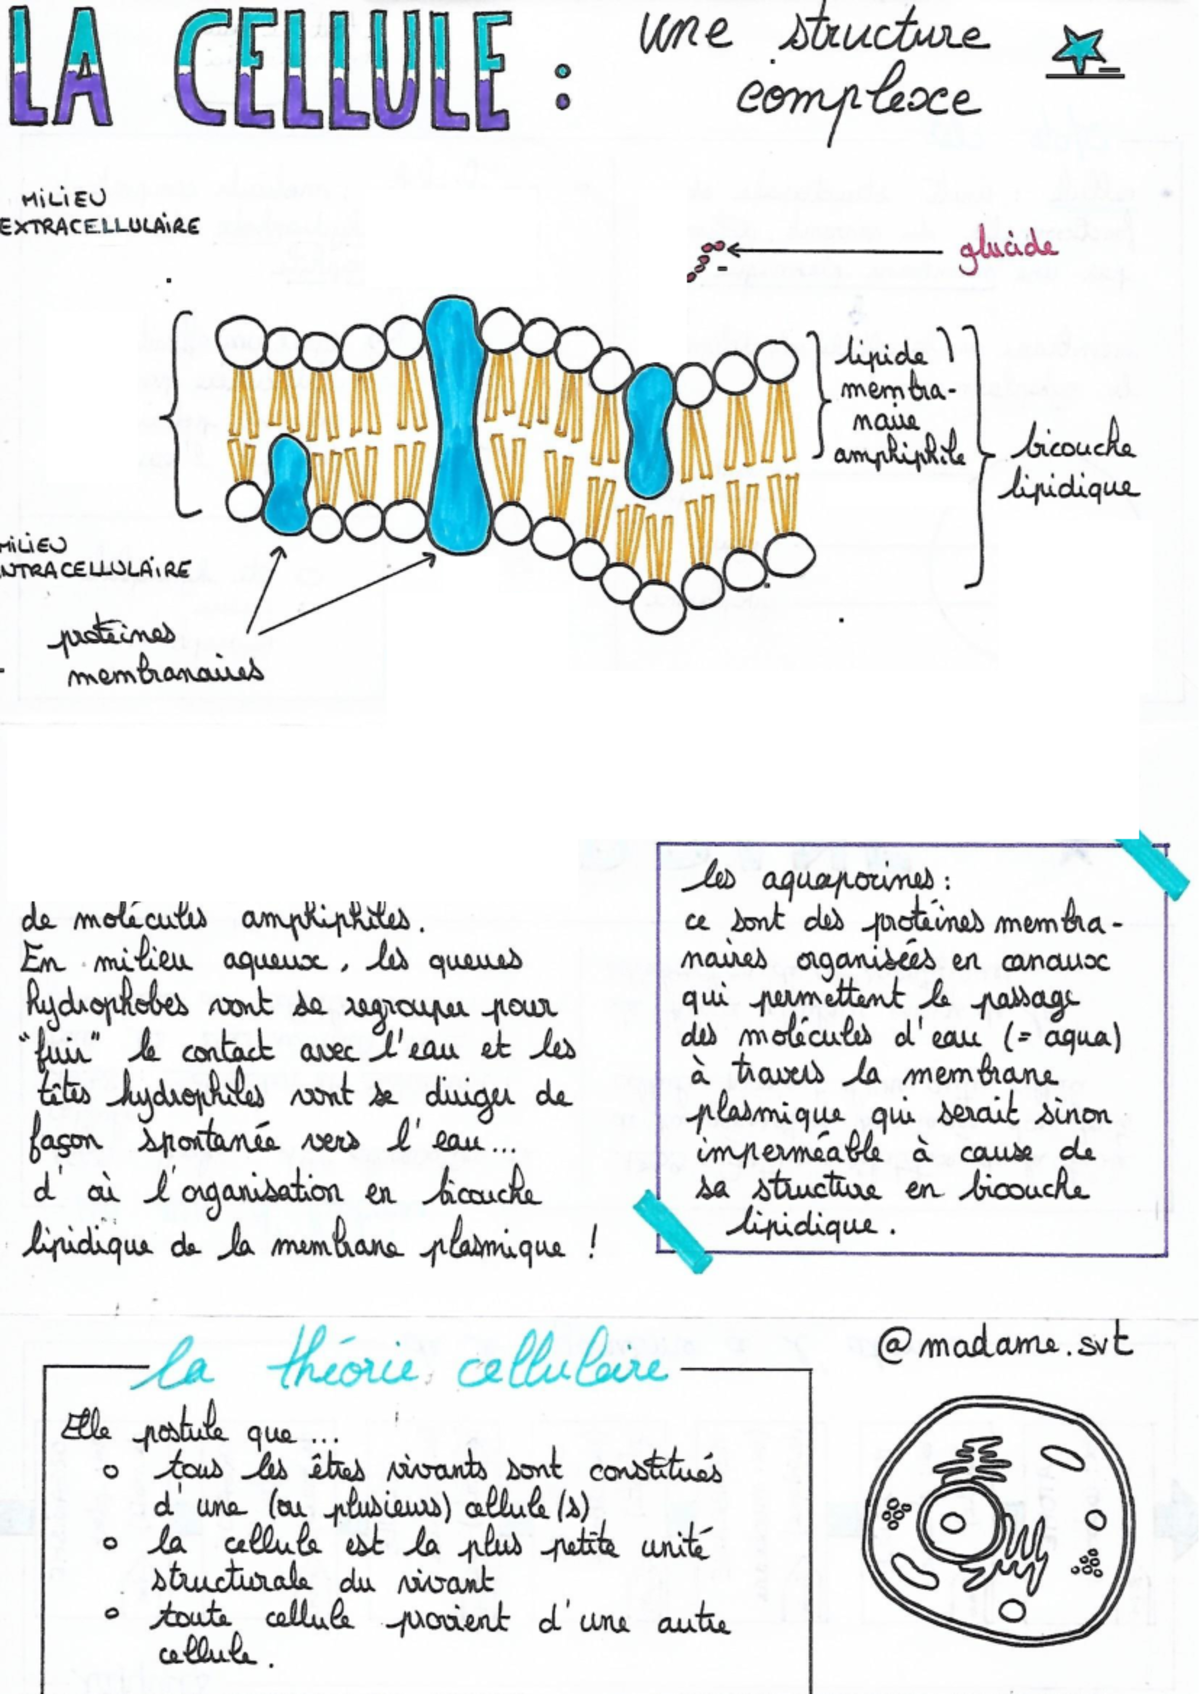 LA CELLULE :
une structure
complexe
MILIEU
EXTRACELLULAIRE
glucide
lipide
membra-
naire
amphiphile
bicouche
lipidique
MILIEU
INTRACELLULAIRE
protéines
membranaires
de molécules amphiphiles.
En milieu aqueux, les queues
hydrophobes vont se regrouper pour
"fuir" le contact avec l'eau et les
têtes hydrophiles vont se diriger de
façon spontanée vers l'eau...
d'où l'organisation en bicouche
lipidique de la membrane plasmique !
les aquaporines :
ce sont des protéines membra-
naires organisées en canaux
qui permettent le passage
des molécules d'eau (= aqua)
à travers la membrane
plasmique qui serait sinon
imperméable à cause de
sa structure en bicouche
lipidique.
@madame.svt
la théorie cellulaire
Elle postule que...
o tous les êtres vivants sont constitués
d'une (ou plusieurs) cellule(s)
o la cellule est la plus petite unité
structurale du vivant
o toute cellule provient d'une autre
cellule.